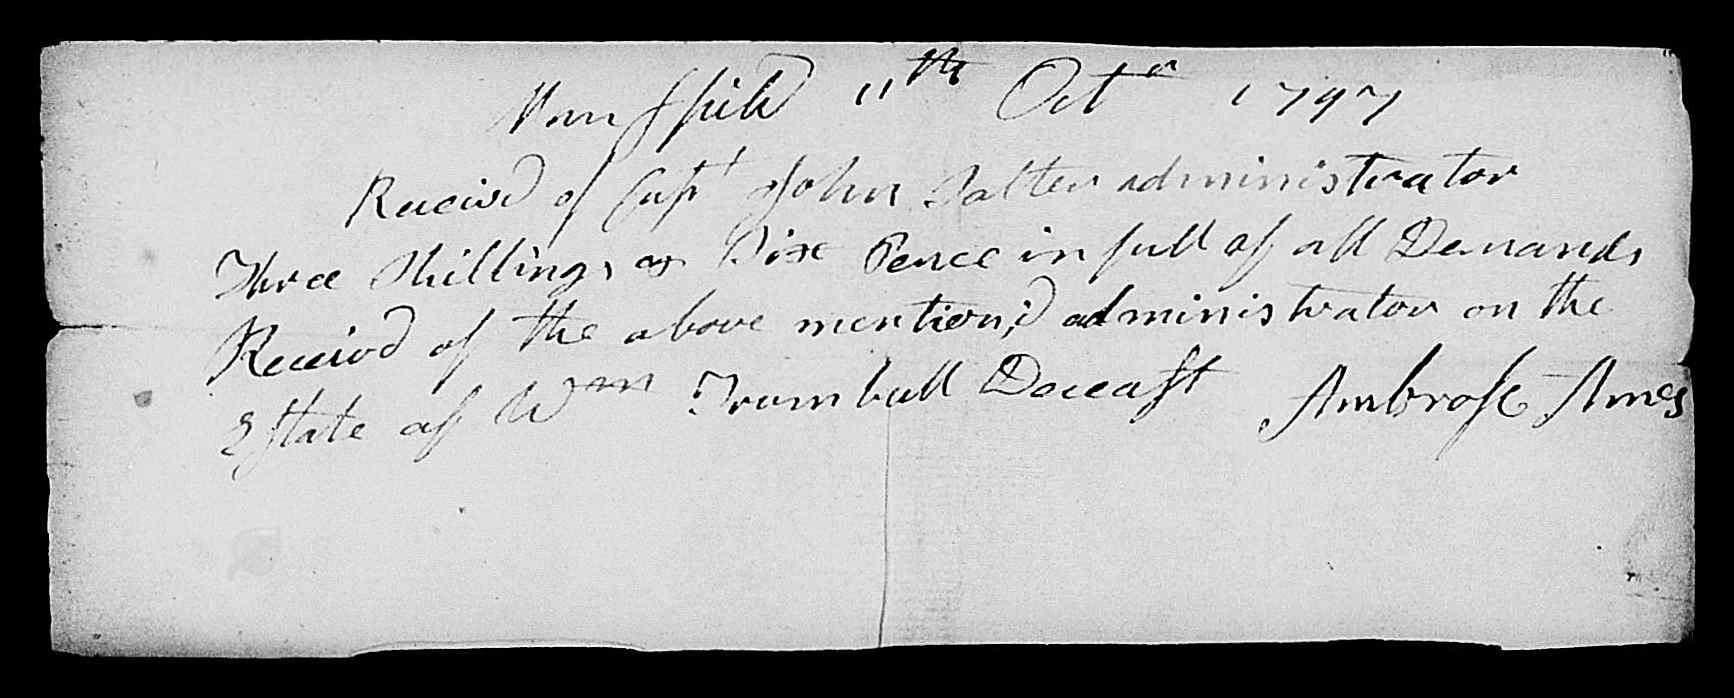 Mansfield 11th Octr 1797
Receivd of Capt John Salter administrator
Three Shillings & Six Pence in full of all Demands
Receivd of the above mention,d administrator on the
Estate of Wm Trumbull Deceast Ambrose Ames